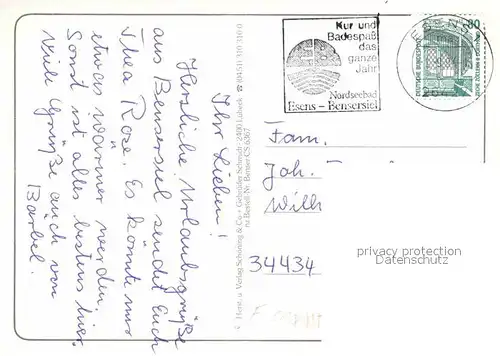 Ihr Lieben!
Herzliche Urlaubsgrüße
aus Bensersiel sendet Euch
Thea Roze. Es könnte nur
etwas wärmer werden.
Sonst ist alles bestens hier.
Viele Grüße auch von
Bärbel.
Herst. u. Verlag Schöning & Co. + Gebrüder Schmidt · 2400 Lübeck
Kur und
Badespaß
das
ganze
Jahr
Nordseebad
Esens - Bensersiel
80
DEUTSCHE BUNDESPOST
Fam.
Joh.
Willi
34434
privacy protection
Datenschutz